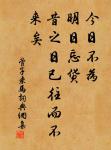 今日不為
明日忘貨
昔之日已往而不
來矣
管子乘馬詞典網集